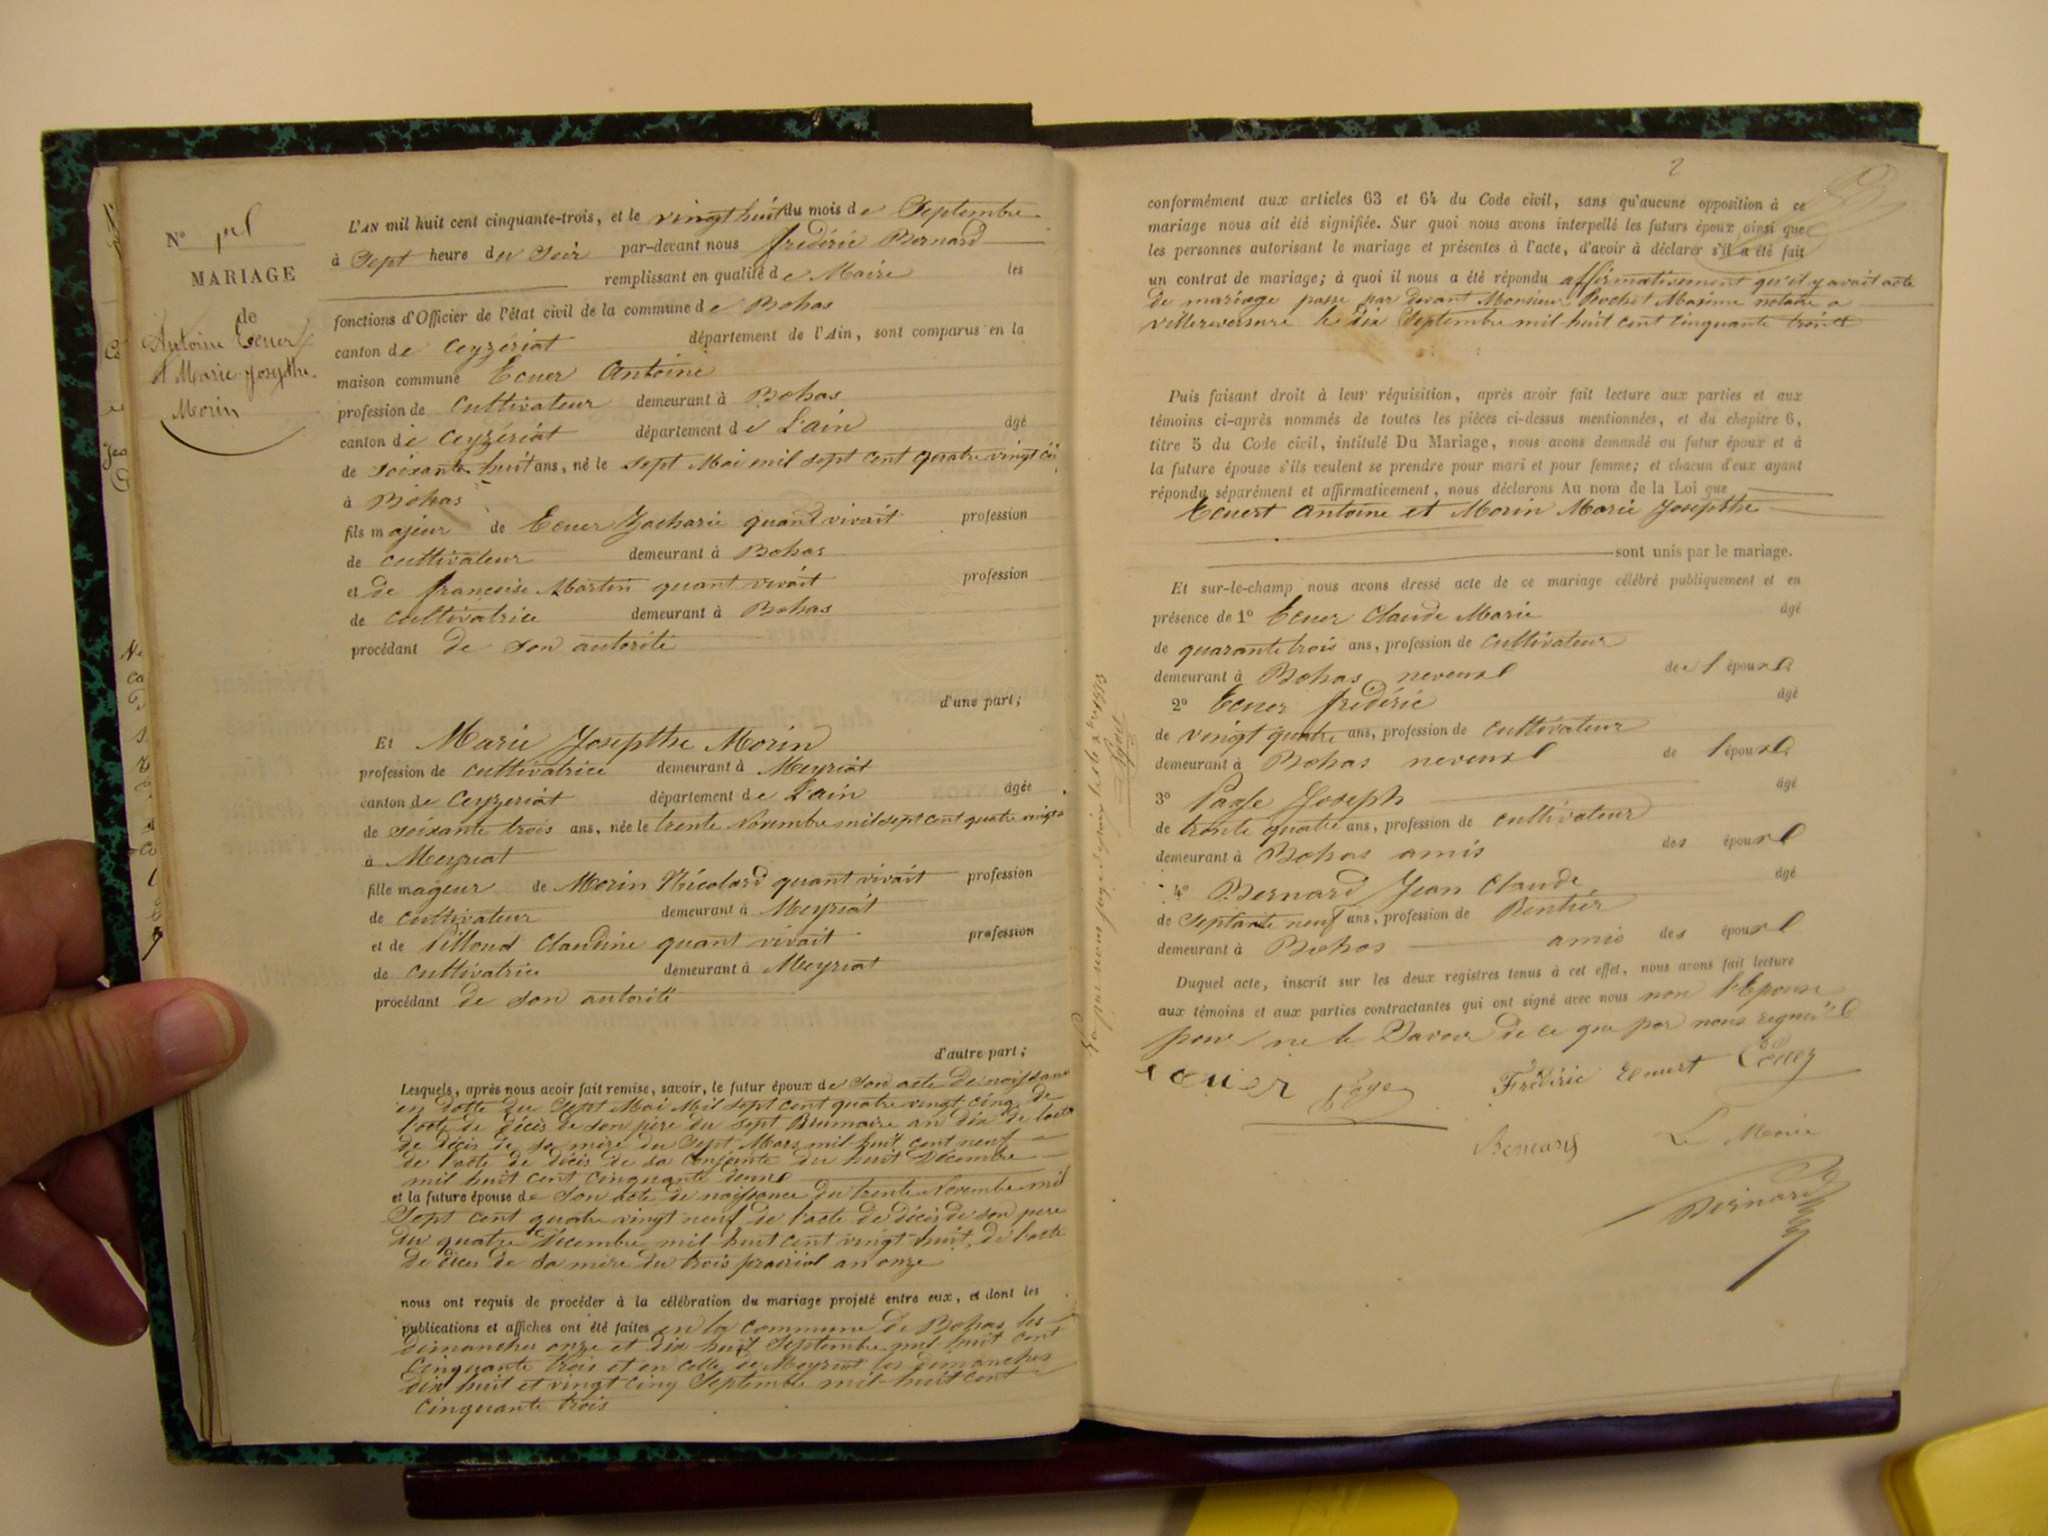 N° 1er
MARIAGE
de
Antoine Ecuer
et Marie Josephte
Morin
L'AN mil huit cent cinquante-trois, et le vingt huit du mois de Septembre
à Sept heure du Soir par-devant nous frédéric Bernard
remplissant en qualité de Maire les
fonctions d'Officier de l'état civil de la commune de Bohas
canton de Ceyzeriat département de l'Ain, sont comparus en la
maison commune Ecuer Antoine
profession de cultivateur demeurant à Bohas
canton de Ceyzériat département de L'ain âgé
de soixante huit ans, né le sept Mai mil sept cent quatre vingt
à Bohas
fils majeur de Ecuer Zacharie quand vivait profession
de cultivateur demeurant à Bohas
et de francoise Martin quant vivait profession
de cultivatrice demeurant à Bohas
procédant de son autorité
d'une part;
Et Marie Josepthe Morin
profession de cultivatrice demeurant à Meyriat
canton de Ceyzeriat département de L'ain âgée
de soixante trois ans, née le trente Novembre mil sept cent quatre vingt
à Meyriat
fille mageur de Morin Nicolard quant vivait profession
de cultivateur demeurant à Meyriat
et de Pilloud Claudine quant vivait profession
de cultivatrice demeurant à Meyriat
procédant de son autorité
d'autre part;
Lesquels, après nous avoir fait remise, savoir, le futur époux de son acte de naissance
en datte du Sept Mai Mil sept cent quatre vingt cinq de
l'acte de décis de son père du sept Brumaire an dix de l'acte
de décis de sa mère du Sept Mars mil huit cent neuf
de l'acte de décis de sa conjointe du huit Décembre
mil huit cent cinquante deux
et la future épouse de son acte de naissance du trente Novembre mil
Sept cent quatre vingt neuf de l'acte de décis de son pere
du quatre Décembre mil huit cent vingt huit, de l'acte
de décis de sa mère du trois prairial an onze
nous ont requis de procéder à la célébration du mariage projeté entre eux, et dont les
publications et affiches ont été faites en la commune de Bohas les
dimanches onze et dix huit Septembre mil huit cent
cinquante trois et en celle de Meyriat les dimanches
dix huit et vingt cinq Septembre mil huit cent
cinquante trois
2
conformément aux articles 63 et 64 du Code civil, sans qu'aucune opposition à ce
mariage nous ait été signifiée. Sur quoi nous avons interpellé les futurs époux ainsi que
les personnes autorisant le mariage et présentes à l'acte, d'avoir à déclarer s'il a été fait
un contrat de mariage; à quoi il nous a été répondu affirmativement qu'il y avait acte
de mariage passé par devant Monsieur Rochet Maxime notaire a
villereversure le dix Septembre mil huit cent cinquante trois
Puis faisant droit à leur réquisition, après avoir fait lecture aux parties et aux
témoins ci-après nommés de toutes les pièces ci-dessus mentionnées, et du chapitre 6,
titre 5 du Code civil, intitulé Du Mariage, nous avons demandé au futur époux et à
la future épouse s'ils veulent se prendre pour mari et pour femme; et chacun d'eux ayant
répondu séparément et affirmativement, nous déclarons Au nom de la Loi que
Ecuert Antoine et Morin Marie Josepthe
sont unis par le mariage.
Et sur-le-champ nous avons dressé acte de ce mariage célébré publiquement et en
présence de 1° Ecuer Claude Marie âgé
de quarante trois ans, profession de cultivateur
demeurant à Bohas neveux de l'époux
2° Ecuer frédéric âgé
de vingt quatre ans, profession de cultivateur
demeurant à Bohas neveux de l'époux
3° Page Joseph âgé
de trente quatre ans, profession de cultivateur
demeurant à Bohas amis des époux
4° Bernard Jean Claude âgé
de Septante neuf ans, profession de Rentier
demeurant à Bohas amis des époux
Duquel acte, inscrit sur les deux registres tenus à cet effet, nous avons fait lecture
aux témoins et aux parties contractantes qui ont signé avec nous non l'Epouse
pour ne le Savoir de ce que par nous requis
ecuer Page Frédéric Ecuert Ecuer
Bernard Le Maire
Bernard